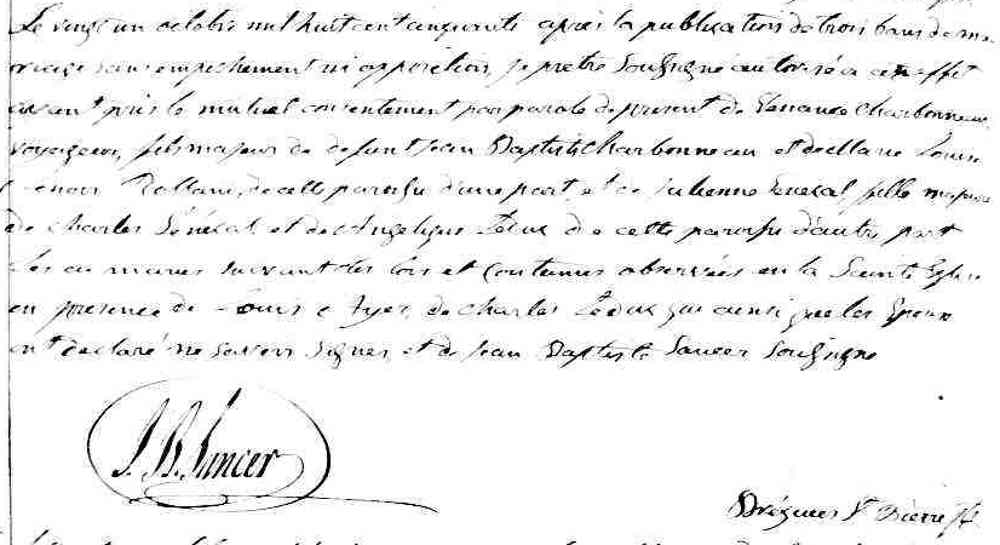 Le vingt un octobre mil huit cent cinquante après la publication de trois bans de ma
riage sans empechement ni opposition, je pretre Soussigné autorisé a cet effet
ayant pris le mutuel consentement par parole de present de Charbonneau
voyageur, fils majeur de defunt Jean Baptiste Charbonneau et de Marie Louise
Rollan, de cette paroisse d'une part, et de Julienne Sénécal, fille majeure
de Charles Sénécal, et de Angelique Leduc de cette paroisse d'autre part
Les ai mariés suivant les lois et Coutumes observées en la Sainte Eglise
en presence de Louis Ayer, de Charles Leduc qui ainsi que les Epoux
ont declaré ne savoir signer, et de Jean Baptiste Sancer Soussigné
J. B. Sancer
St Pierre Ptre